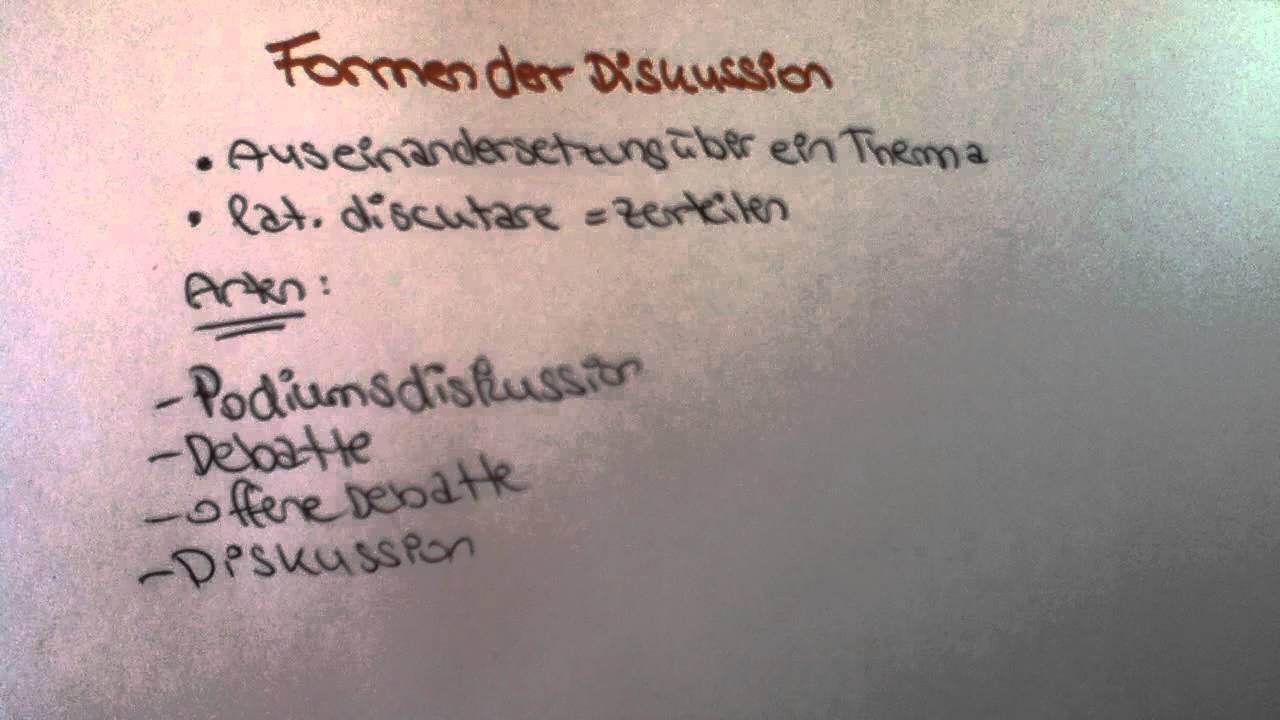 Formen der Diskussion
• Auseinandersetzung über ein Thema
• lat. discutare = zerteilen
Arten:
- Podiumsdiskussion
- Debatte
- offene Debatte
- Diskussion